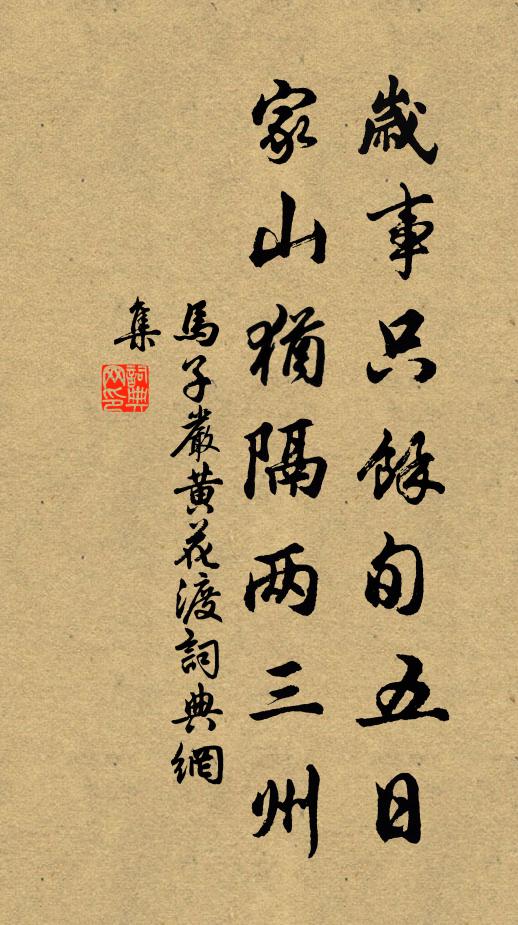 歲事只餘旬五日
家山猶隔两三州
馬子嚴黃花渡詞典網
集
詞典网印